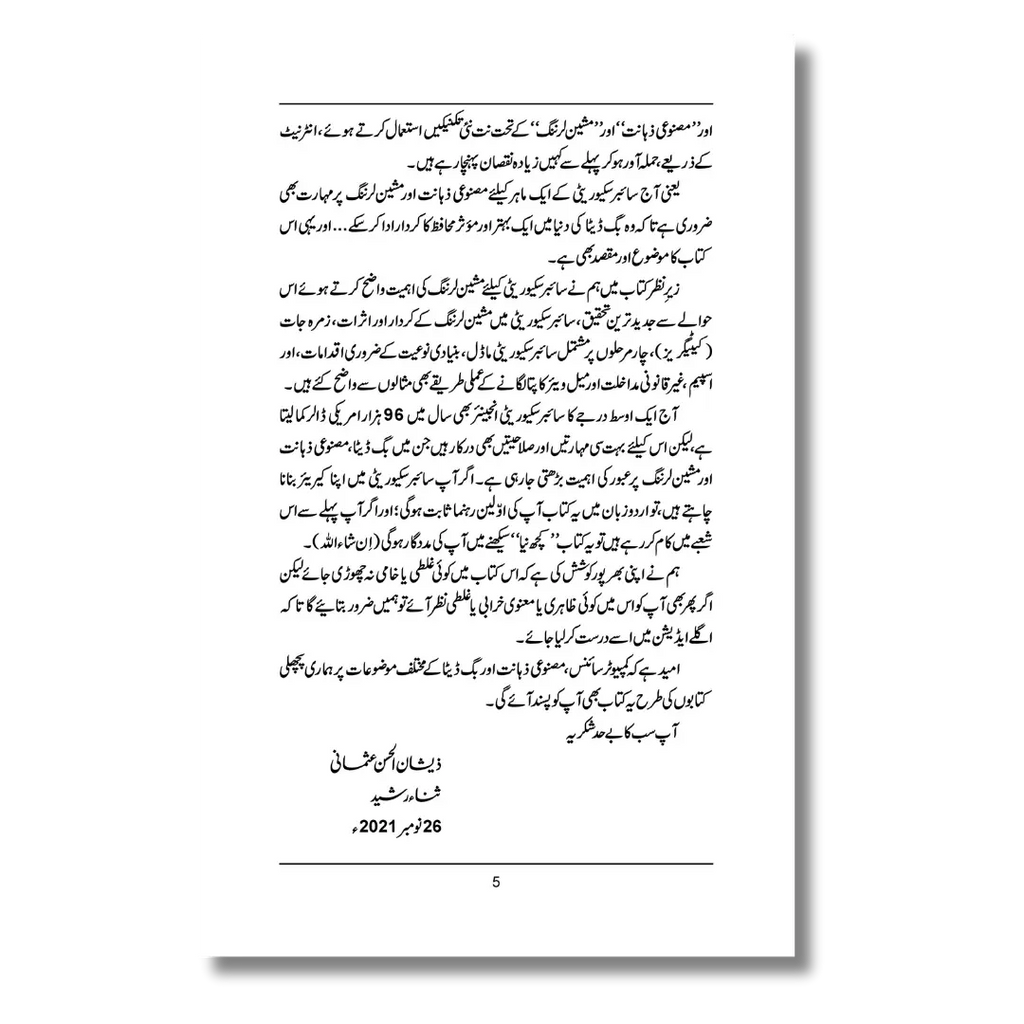 اور ’’مصنوعی ذہانت‘‘ اور ’’مشین لرننگ‘‘ کے تحت نت نئی تکنیکیں استعمال کرتے ہوئے، انٹرنیٹ
کے ذریعے، حملہ آور ہو کر پہلے سے کہیں زیادہ نقصان پہنچا رہے ہیں۔
یعنی آج سائبر سکیوریٹی کے ایک ماہر کیلئے مصنوعی ذہانت اور مشین لرننگ پر مہارت بھی
ضروری ہے تاکہ وہ بگ ڈیٹا کی دنیا میں ایک بہتر اور مؤثر محافظ کا کردار ادا کر سکے... اور یہی اس
کتاب کا موضوع اور مقصد بھی ہے۔
زیرِ نظر کتاب میں ہم نے سائبر سکیوریٹی کیلئے مشین لرننگ کی اہمیت واضح کرتے ہوئے اس
حوالے سے جدید ترین تحقیق، سائبر سکیوریٹی میں مشین لرننگ کے کردار اور اثرات، زمرہ جات
(کیٹیگریز)، چار مرحلوں پر مشتمل سائبر سکیوریٹی ماڈل، بنیادی نوعیت کے ضروری اقدامات، اور
اسپیم، غیر قانونی مداخلت اور میل ویئر کا پتا لگانے کے عملی طریقے بھی مثالوں سے واضح کئے ہیں۔
آج ایک اوسط درجے کا سائبر سکیوریٹی انجینئر بھی سال میں 96 ہزار امریکی ڈالر کما لیتا
ہے، لیکن اس کیلئے بہت سی مہارتیں اور صلاحیتیں بھی درکار ہیں جن میں بگ ڈیٹا، مصنوعی ذہانت
اور مشین لرننگ پر عبور کی اہمیت بڑھتی جارہی ہے۔ اگر آپ سائبر سکیوریٹی میں اپنا کیریئر بنانا
چاہتے ہیں، تو اردو زبان میں یہ کتاب آپ کی اوّلین رہنما ثابت ہوگی؛ اور اگر آپ پہلے سے اس
شعبے میں کام کر رہے ہیں تو یہ کتاب ’’کچھ نیا‘‘ سیکھنے میں آپ کی مددگار ہوگی (اِن شاء اللہ)۔
ہم نے اپنی بھرپور کوشش کی ہے کہ اس کتاب میں کوئی غلطی یا خامی نہ چھوڑی جائے لیکن
اگر پھر بھی آپ کو اس میں کوئی ظاہری یا معنوی خرابی یا غلطی نظر آئے تو ہمیں ضرور بتائیے گا تاکہ
اگلے ایڈیشن میں اسے درست کر لیا جائے۔
امید ہے کہ کمپیوٹر سائنس، مصنوعی ذہانت اور بگ ڈیٹا کے مختلف موضوعات پر ہماری پچھلی
کتابوں کی طرح یہ کتاب بھی آپ کو پسند آئے گی۔
آپ سب کا بے حد شکریہ
ذیشان الحسن عثمانی
ثناء رشید
26 نومبر 2021ء
5